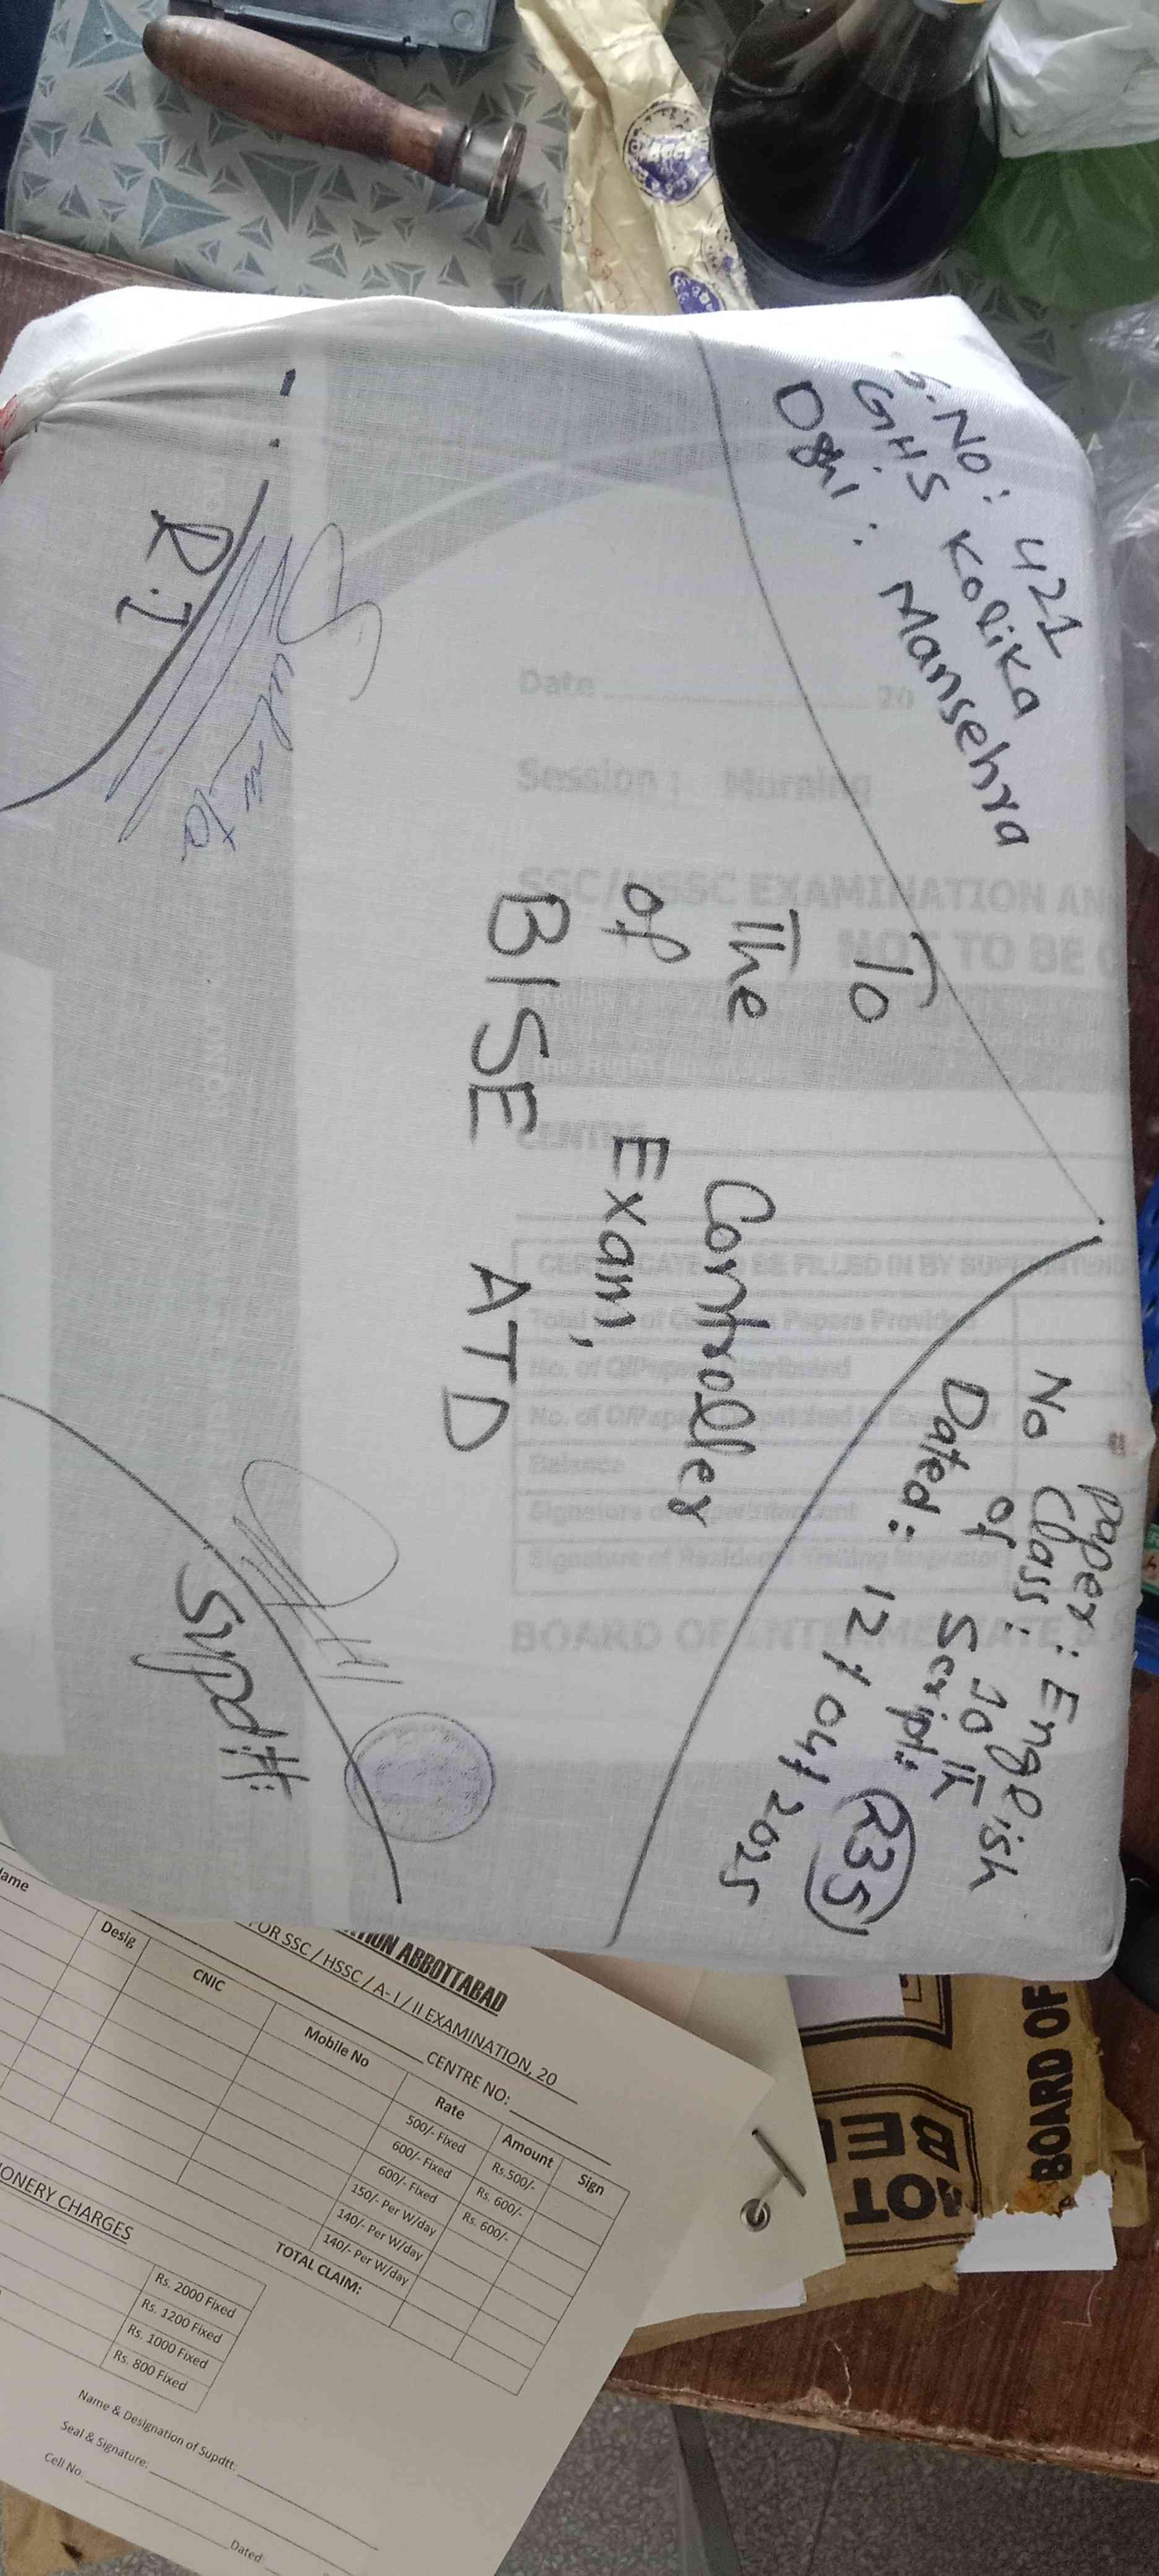 S.No: 421
GHS Kolika
Oghi: Mansehra
Paper: English
Class: 10th
No of Script: 235
Dated: 12/04/2025
To
The Controller
of Exam,
BISE ATD
R.I
Supdtt:
Date 20
Session: Morning
SSC/HSSC EXAMINATION AN
NOT TO BE O
CENTRE
CERTIFICATE TO BE FILLED IN BY SUPERINTEND
Papers Provided
Balance
Signature of Superintendent
Signature of Resident Inspector
BOARD OF INTERMEDIATE
ABBOTTABAD
FOR SSC / HSSC / A-I / II EXAMINATION, 20
CENTRE NO:
ame
Desig
CNIC
Mobile No
Rate
Amount
Sign
500/- Fixed Rs.500/-
600/- Fixed Rs. 600/-
600/- Fixed Rs. 600/-
150/- Per W/day
140/- Per W/day
140/- Per W/day
TOTAL CLAIM:
ONERY CHARGES
Rs. 2000 Fixed
Rs. 1200 Fixed
Rs. 1000 Fixed
Rs. 800 Fixed
Name & Designation of Supdtt.
Seal & Signature:
Cell No:
Dated
BOARD OF
NOT BE